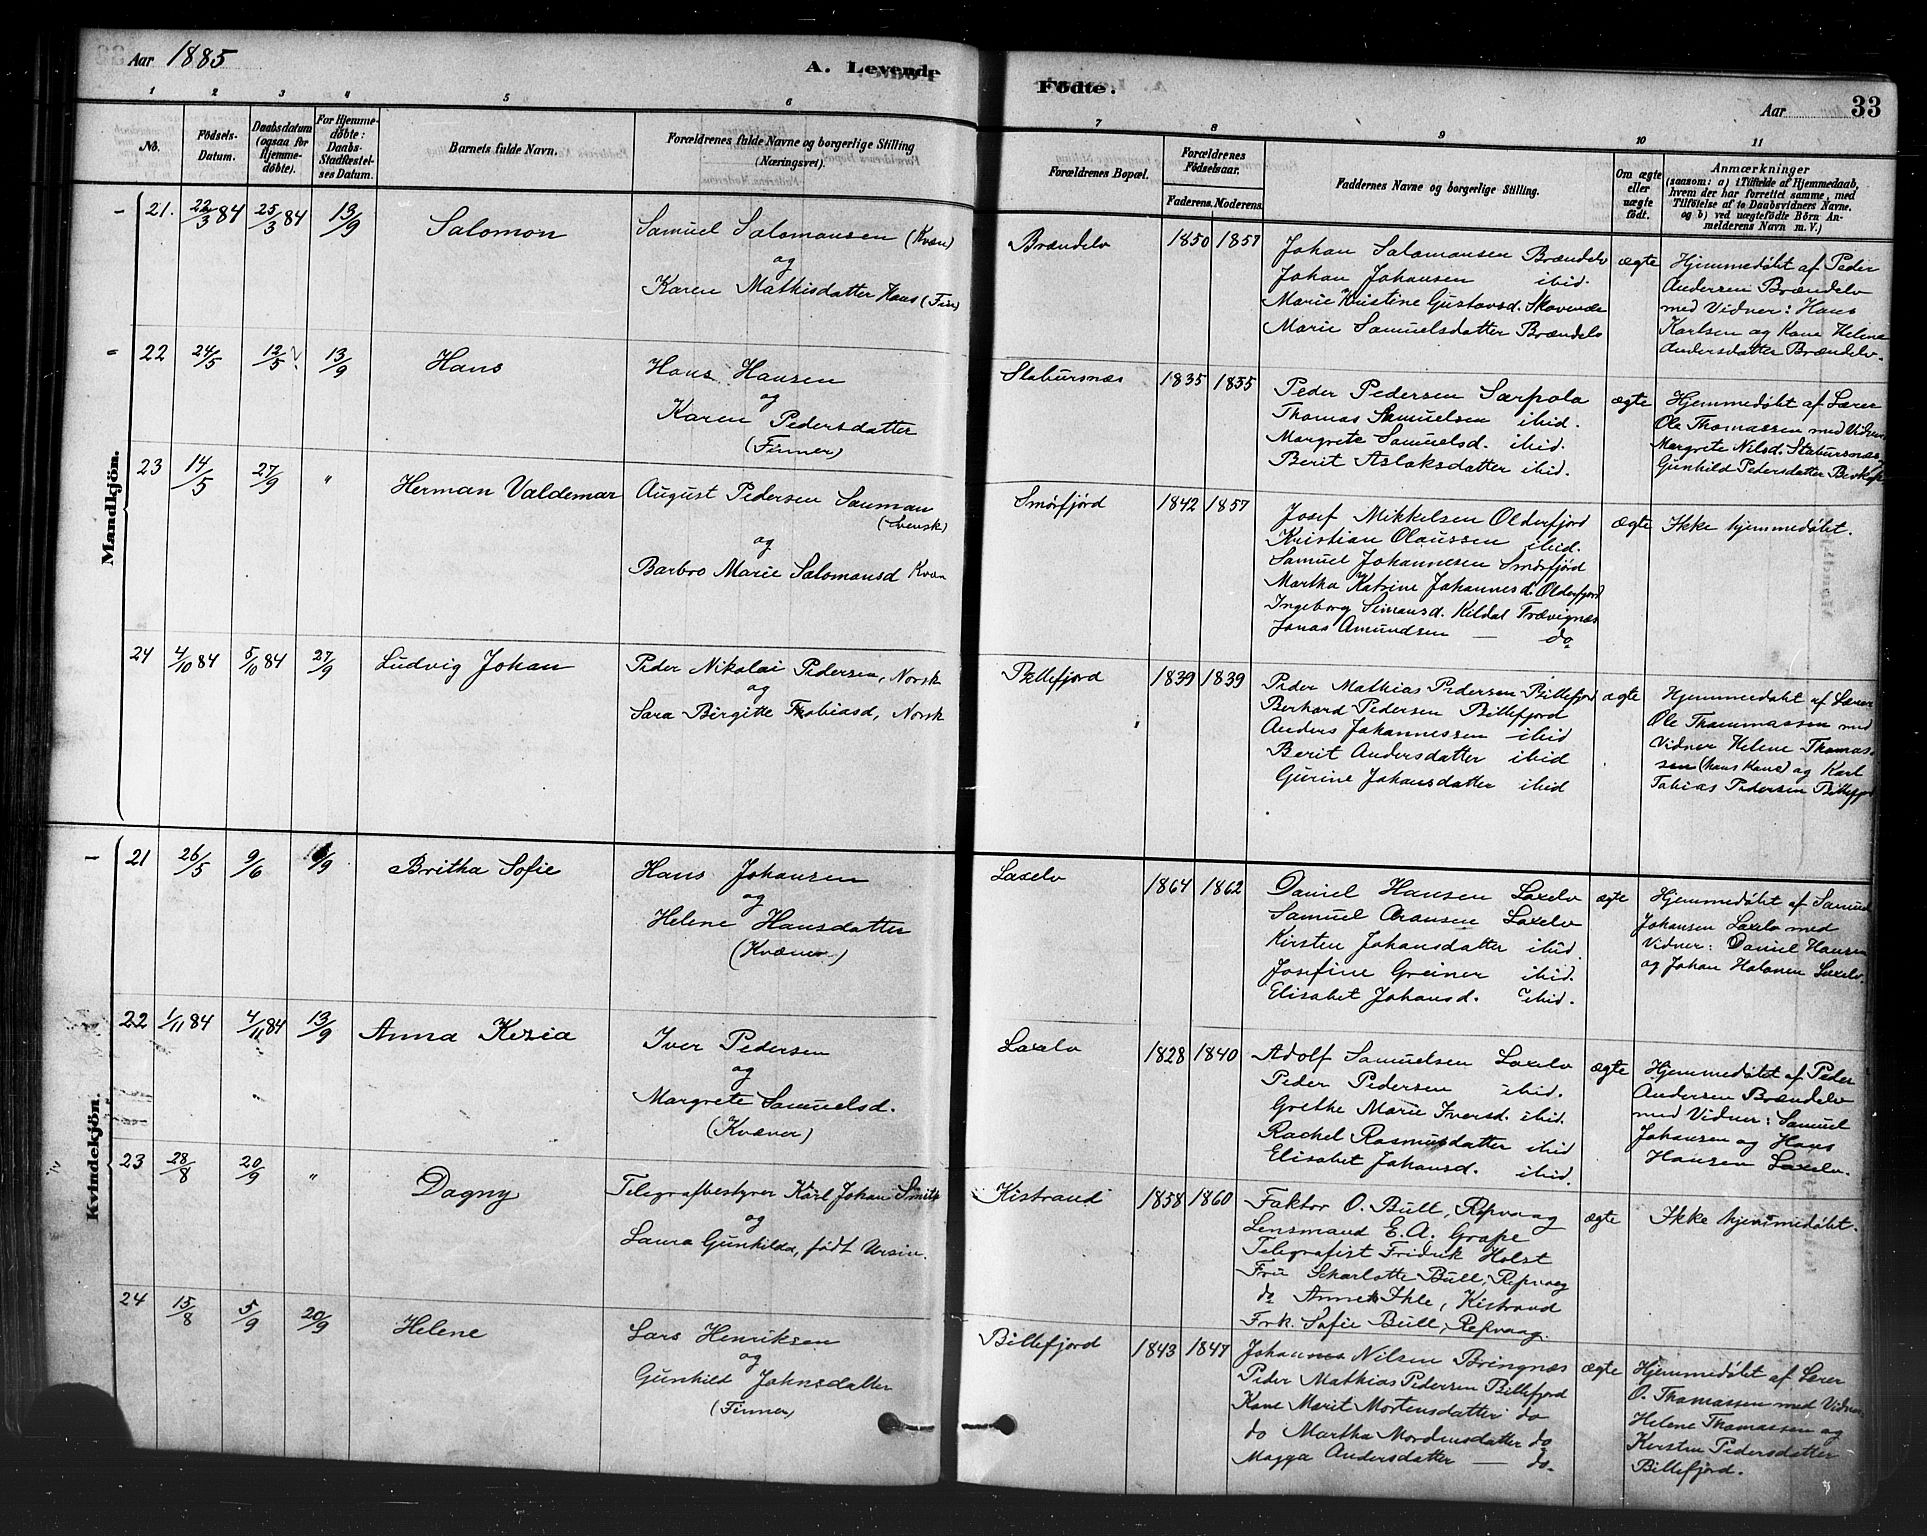 Aar 1885
A. Levende
Fødte.
Aar
33
1 2 3 4 5 6 7 8 9 10 11
No.
Fødsels-Datum.
Daabsdatum (ogsaa for Hjemmedøbte).
For Hjemmedøbte: Daabs-Stadfæstelses Datum.
Barnets fulde Navn.
Forældrenes fulde Navne og borgerlige Stilling (Næringsvei).
Forældrenes Bopæl.
Forældrenes Fødselsaar.
Faderens. Moderens.
Faddernes Navne og borgerlige Stilling.
Om ægte eller uægte født.
Anmærkninger
(saasom: a) i Tilfælde af Hjemmedaab,
hvem der har forrettet samme, med
Tilføielse af to Daabsvidners Navne.
og b) ved uægtefødte Børn An-
melderens Navn m. V.)
Mandkjön.
21. 22/3 84 25/3 84 13/9 Salomon
Samuel Salomonsen (Kvæn)
og
Karen Mathisdatter Hans (Fin)
Brændelv 1850 1857
Johan Salomonsen Brændelv
Johan Johansen ibid.
Marie Kristine Gustavsd.
Marie Samuelsdatter Brændelv
ægte
Hjemmedøbt af Peder
Andersen Brændelv
med Vidner: Hans
Karlsen og Kone Helene
Andersdatter Brændelv.
22 24/5 12/5? 13/9 Hans
Hans Hansen
og
Karen Pedersdatter
(Finner)
Stabursnæs 1835 1855
Peder Pedersen Sarpola
Thomas Samuelsen ibid.
Margrete Samuelsd. ibid.
Berit Aslaksdatter ibid.
ægte
Hjemmedøbt af Lærer
Ole Thomassen med Vidner
Margrete Nilsd. Stabursnæs
Gunhild Pedersdatter
23 14/5 27/9 " Herman Valdemar
August Pedersen Sauman
(Svensk)
og
Barbro Marie Salomonsd Kvæn
Smørfjord 1842 1857
Josef Mikkelsen Olderfjord
Kristian Olaussen ibid.
Samuel Johannesen Smørfjord
Martha Katrine Johannesd. Olderfjord
Ingeborg Simonsd. Kildal Trævignæs
Jonas Amundsen — do
ægte
Ikke hjemmedøbt.
24 4/10 84 5/10 84 27/9 Ludvig Johan
Peder Nikolai Pedersen, Norsk
og
Sara Birgitte Tobiasd, Norsk
Billefjord 1839 1839
Peder Mathias Pedersen Billefjord
Berhard Pedersen Billefjord
Anders Johannessen ibid
Berit Andersdatter ibid
Gurine Johansdatter ibid
ægte
Hjemmedøbt af Lærer
Ole Thommassen med
Vidner Helene Thomas-
sen (hans Kone) og Karl
Tobias Pedersen Billefjord
Kvindekjön.
21 26/5 9/6 6/9 Britha Sofie
Hans Johansen
og
Helene Hansdatter
(Kvæner)
Laxelv 1864 1862
Daniel Hansen Laxelv
Samuel Aransen Laxelv
Kirsten Johansdatter ibid.
Josefine Greiner ibid.
Elisabet Johansd. ibid.
ægte
Hjemmedøbt af Samuel
Johansen Laxelv med
Vidner: Daniel Hansen
og Johan Halonen Laxelv.
22 1/11 84 4/11 84 13/9 Anna Kezia
Iver Pedersen
og
Margrete Samuelsd.
(Kvæner)
Laxelv 1828 1840
Adolf Samuelsen Laxelv
Peder Pedersen ibid.
Grethe Marie Iversd. ibid.
Rachel Rasmusdatter ibid
Elisabet Johansd. ibid.
ægte
Hjemmedøbt af Peder
Andersen Brændelv
med Vidner: Samuel
Johansen og Hans
Hansen Laxelv.
23 28/8 20/9 " Dagny
Telegrafbestyrer Karl Johan Smitz
og
Laura Gunhilda, født Ursin.
Kistrand 1858 1860
Faktor O. Bull, Repvaag
Lensmand E. A. Grape
Telegrafist Fridrik Holst
Fru Scharlotte Bull, Repvaag
do Anne Ihle, Kistrand
Frk. Sofie Bull, Repvaag.
ægte
Ikke hjemmedøbt.
24 15/8 5/9 20/9 Helene
Lars Henriksen
og
Gunhild Johnsdatter
(Finner)
Billefjord 1843 1847
Johannes Nilsen Bringnæs
Peder Mathias Pedersen Billefjord
Kone Marit Mortensdatter do
do Martha Mordensdatter do
Magga Andersdatter — do.
ægte
Hjemmedøbt af Lærer
O. Thomassen med Vidner
Helene Thomassen og
Kirsten Pedersdatter
Billefjord.